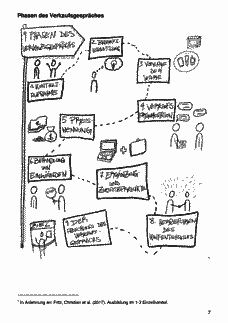 Phasen des Verkaufsgespräches
PHASEN DES
VERKAUFSGESPRÄCHS
1. KONTAKT-
AUFNAHME
2. BEDARFS-
ERMITTLUNG
3. VORLAGE
DER
WARE
4. VERKAUFS-
ARGUMENTATION
5. PREIS-
NENNUNG
6. BEHANDLUNG
VON
EINWÄNDEN
7. ERGÄNZUNG
UND
8.
DES
9. DER
ABSCHLUSS DES
VERKAUFS-
GESPRÄCHS
¹ In Anlehnung an: Fritz, Christian et al. (2017). Ausbildung im 1-3 Einzelhandel.
7